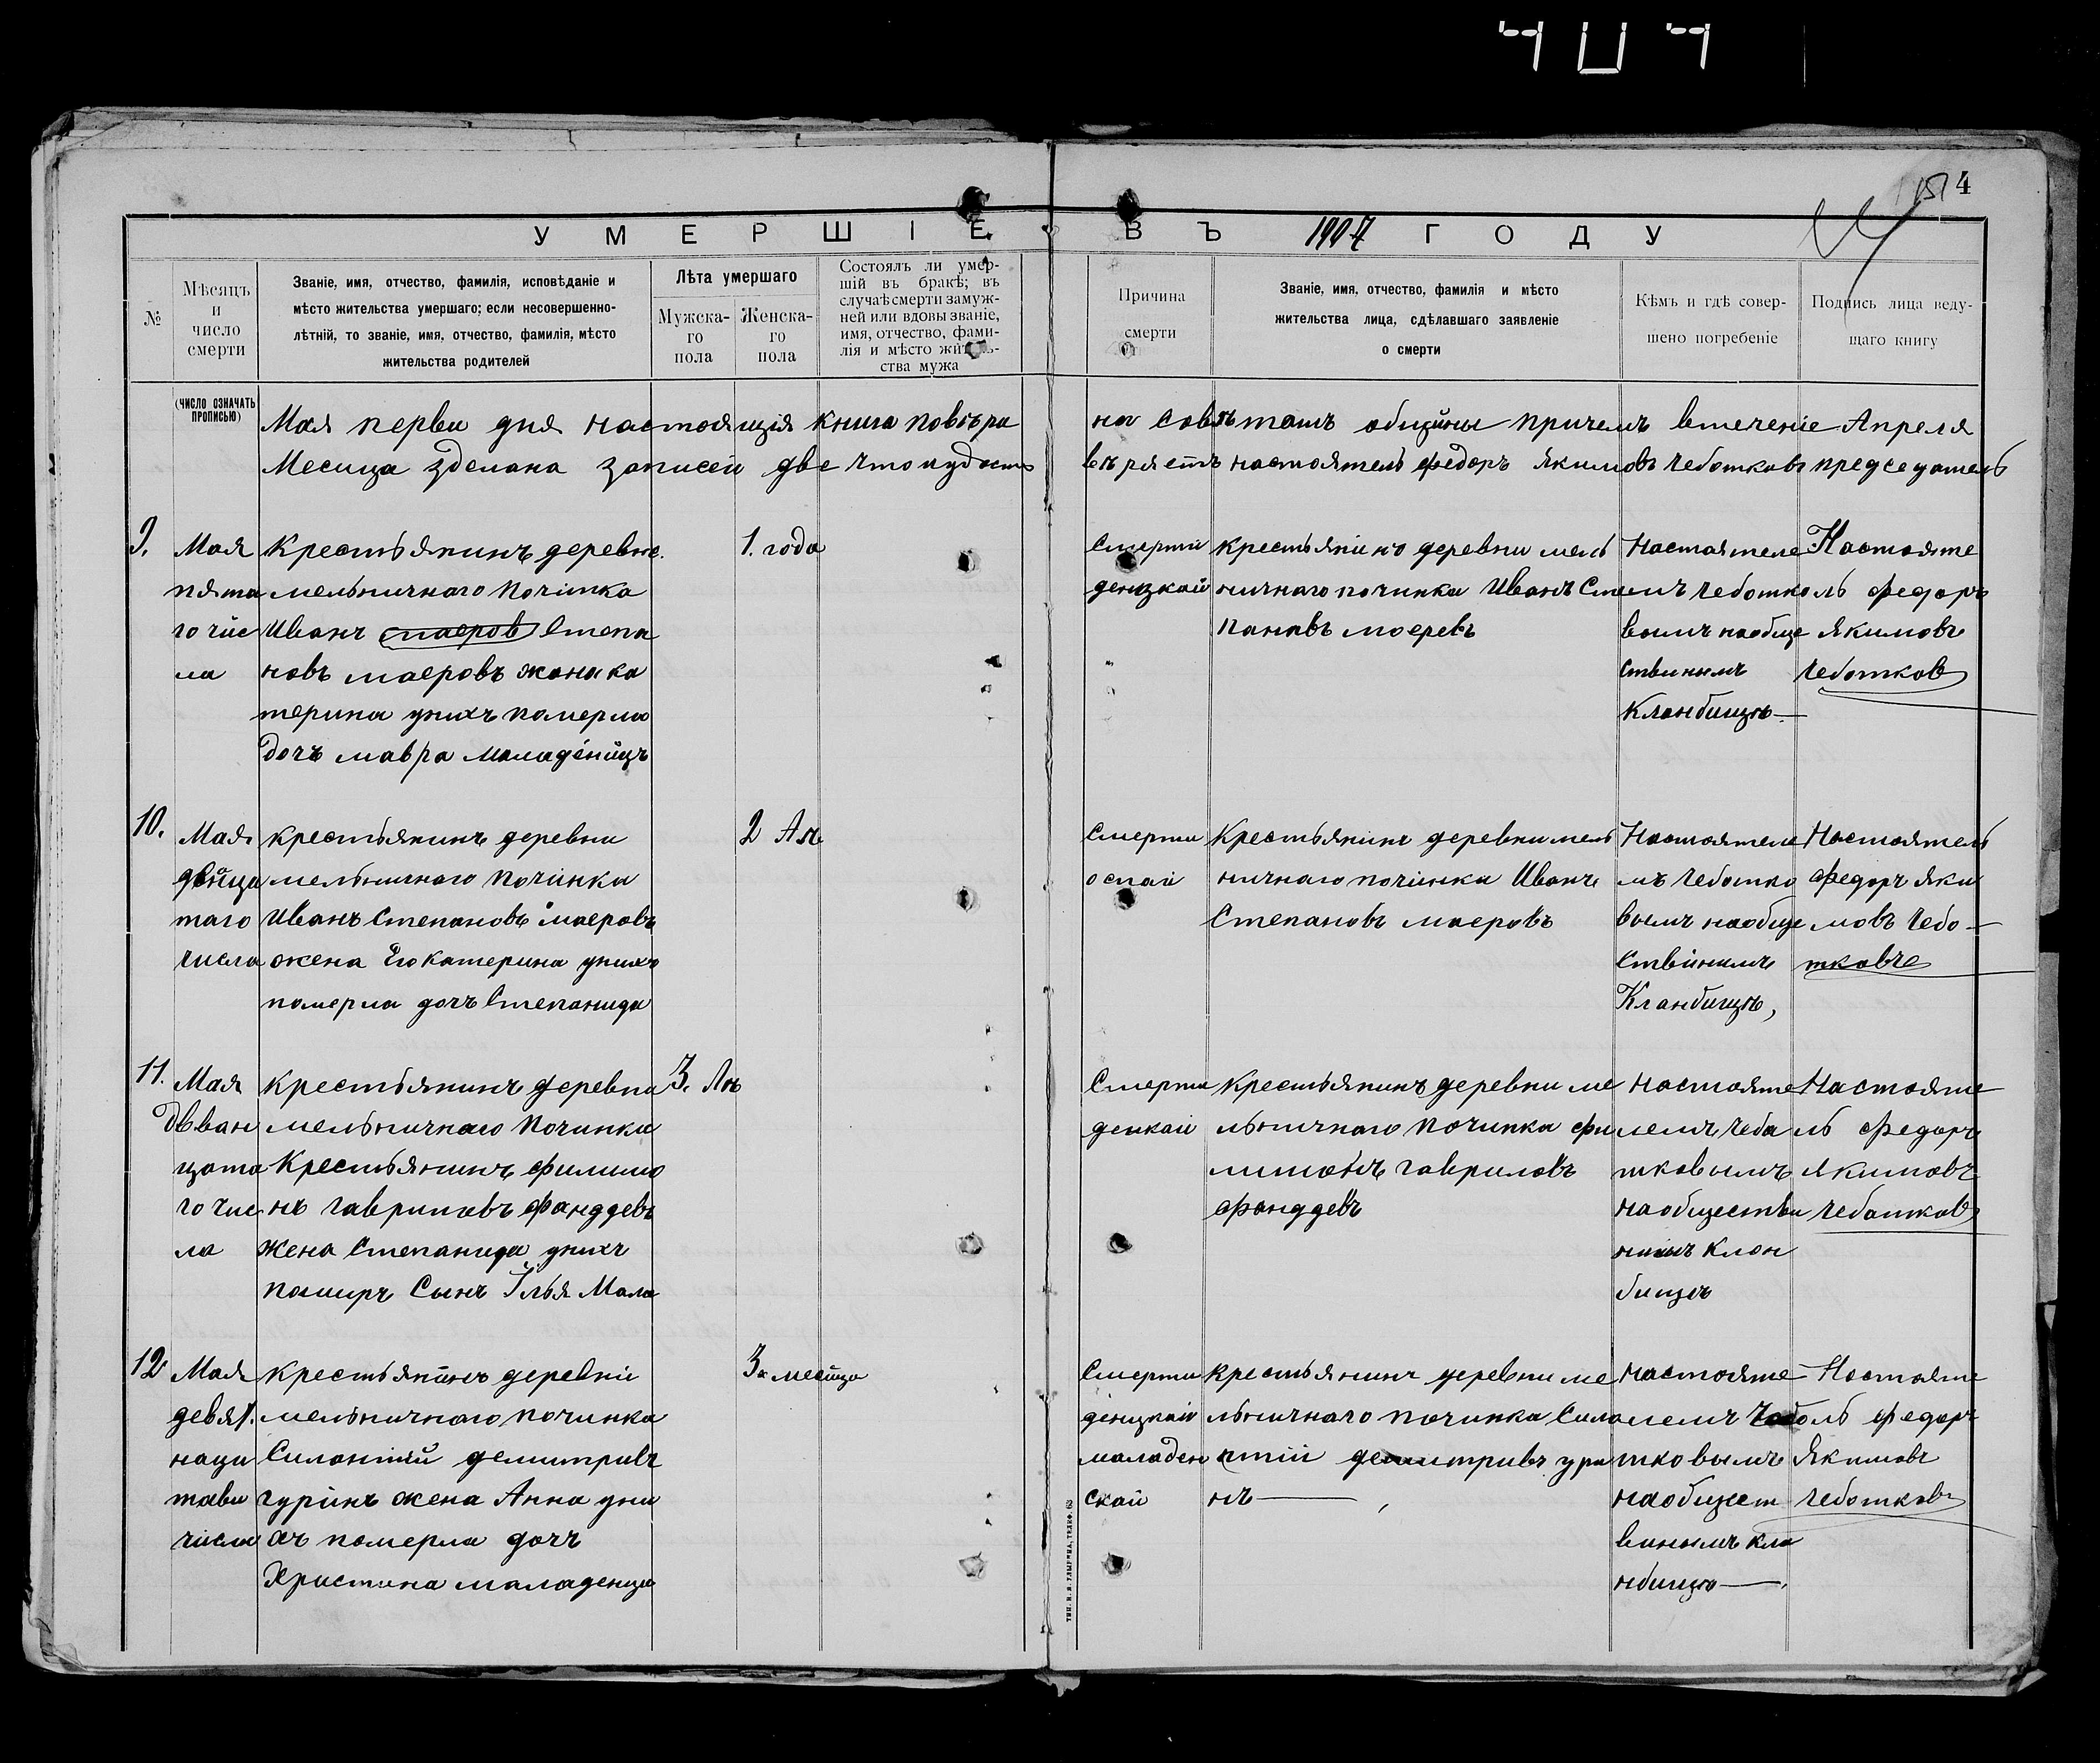 404
151 4
УМЕРШІЕ ВЪ 1907 ГОДУ
№
Мѣсяцъ
и
число
смерти
Званіе, имя, отчество, фамилія, исповѣданіе и
мѣсто жительства умершаго; если несовершенно-
лѣтній, то званіе, имя, отчество, фамилія, мѣсто
жительства родителей
Лѣта умершаго
Мужска-
го
пола
Женска-
го
пола
Состоялъ ли умер-
шій въ бракѣ; въ
случаѣ смерти замуж-
ней или вдовы званіе,
имя, отчество, фами-
лія и мѣсто житель-
ства мужа
Причина
смерти
Званіе, имя, отчество, фамилія и мѣсто
жительства лица, сдѣлавшаго заявленіе
о смерти
Кѣмъ и гдѣ совер-
шено погребеніе
Подпись лица веду-
щаго книгу
(ЧИСЛО ОЗНАЧАТЬ
ПРОПИСЬЮ)
Мая перва дня настоящія книга повѣрана совѣтамъ общины причемъ втеченіе Апреля
Месица зделана записей две что и удостовѣряетъ настоятель федоръ якимовъ чеботковъ председатель
9.
Мая
пята
го чис
ла
Крестьянинъ деревне
мельничнаго починка
Иванъ маеров Степа
новъ маеровъ жена ка
терина унихъ померла
дочъ мавра маладеницъ
1. года
Смерти
денцкай
крестьянино деревни мель
ничнаго починка Иванъ Сте
пановъ моеревъ
Настоятеле
мъ чеботко
вымъ наобще
ственымъ
Кланбищѣ
Настояте
ль федоръ
якимовъ
чеботков
10.
Мая
двица
таго
числа
крестьянинъ деревни
мельничнаго починка
Иванъ Степановъ маеровъ
жена Его катерина унихъ
померла дочъ Степанида
2 Лѣ
Смерти
оспай
Крестьянинъ деревни мель
ничнаго починка Иванъ
Степановъ маеровъ
Настоятеле
мъ чеботко
вымъ наобще
ствінымъ
Кланбищѣ,
Настоятель
федоръ яки
мовъ чебо
тковъ
11.
Мая
Двван
цата
го чис
ла
крестьянинъ деревна
мельничнаго починки
Крестьянинъ филимо
нъ гавриловъ фанддевъ
жена Степанида унихъ
помиръ Сынъ Ілья Мала
3. Лѣ
Смерти
децкай
крестьянинъ деревни ме
льничнаго починка фи
лимонъ гавриловъ
фанддевъ
настояте
лемъ чеба
тковымъ
наобществи
нымъ клон
бищѣ
Настояте
ль федоръ
якимовъ
чебатков
12
Мая
девят.
наци
тави
числа
крестьянинъ деревни
мельничнаго починка
Силантий демитривъ
гуринъ жена Анна уни
хъ померла дочъ
Христина маладенцъ
3х месица
Смерти
денцкай
маладен
скай
крестьянинъ деревни ме
льничнаго починка Сила
нтій демитривъ гури
нъ
настояте
лемъ чебо
тковымъ
наобщест
винымъ кла
нбищѣ
Настояте
ль федоръ
якимовъ
чеботковъ